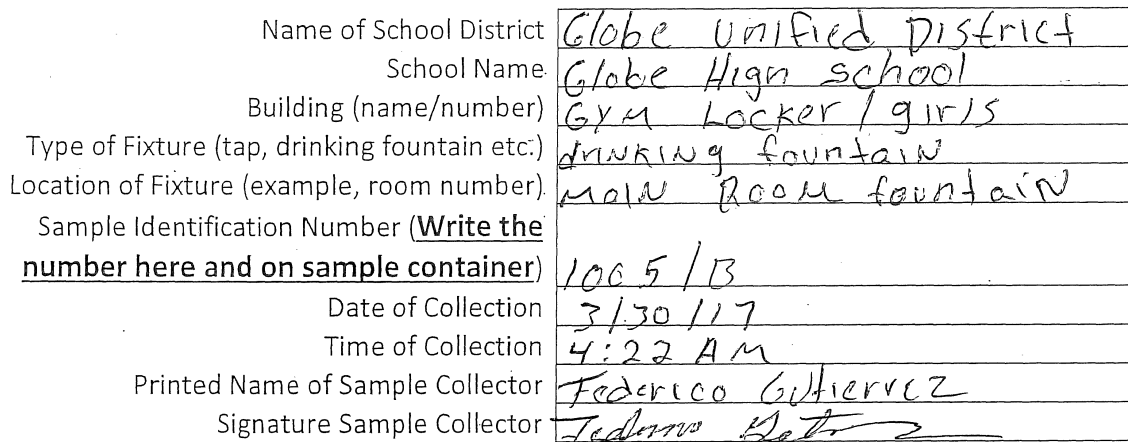 Name of School District Globe Unified District
School Name Globe High school
Building (name/number) GYM Locker / girls
Type of Fixture (tap, drinking fountain etc.) drinking fountain
Location of Fixture (example, room number) Main Room fountain
Sample Identification Number (Write the
number here and on sample container) 1005/B
Date of Collection 3/30/17
Time of Collection 4:22 AM
Printed Name of Sample Collector Federico Gutierrez
Signature Sample Collector